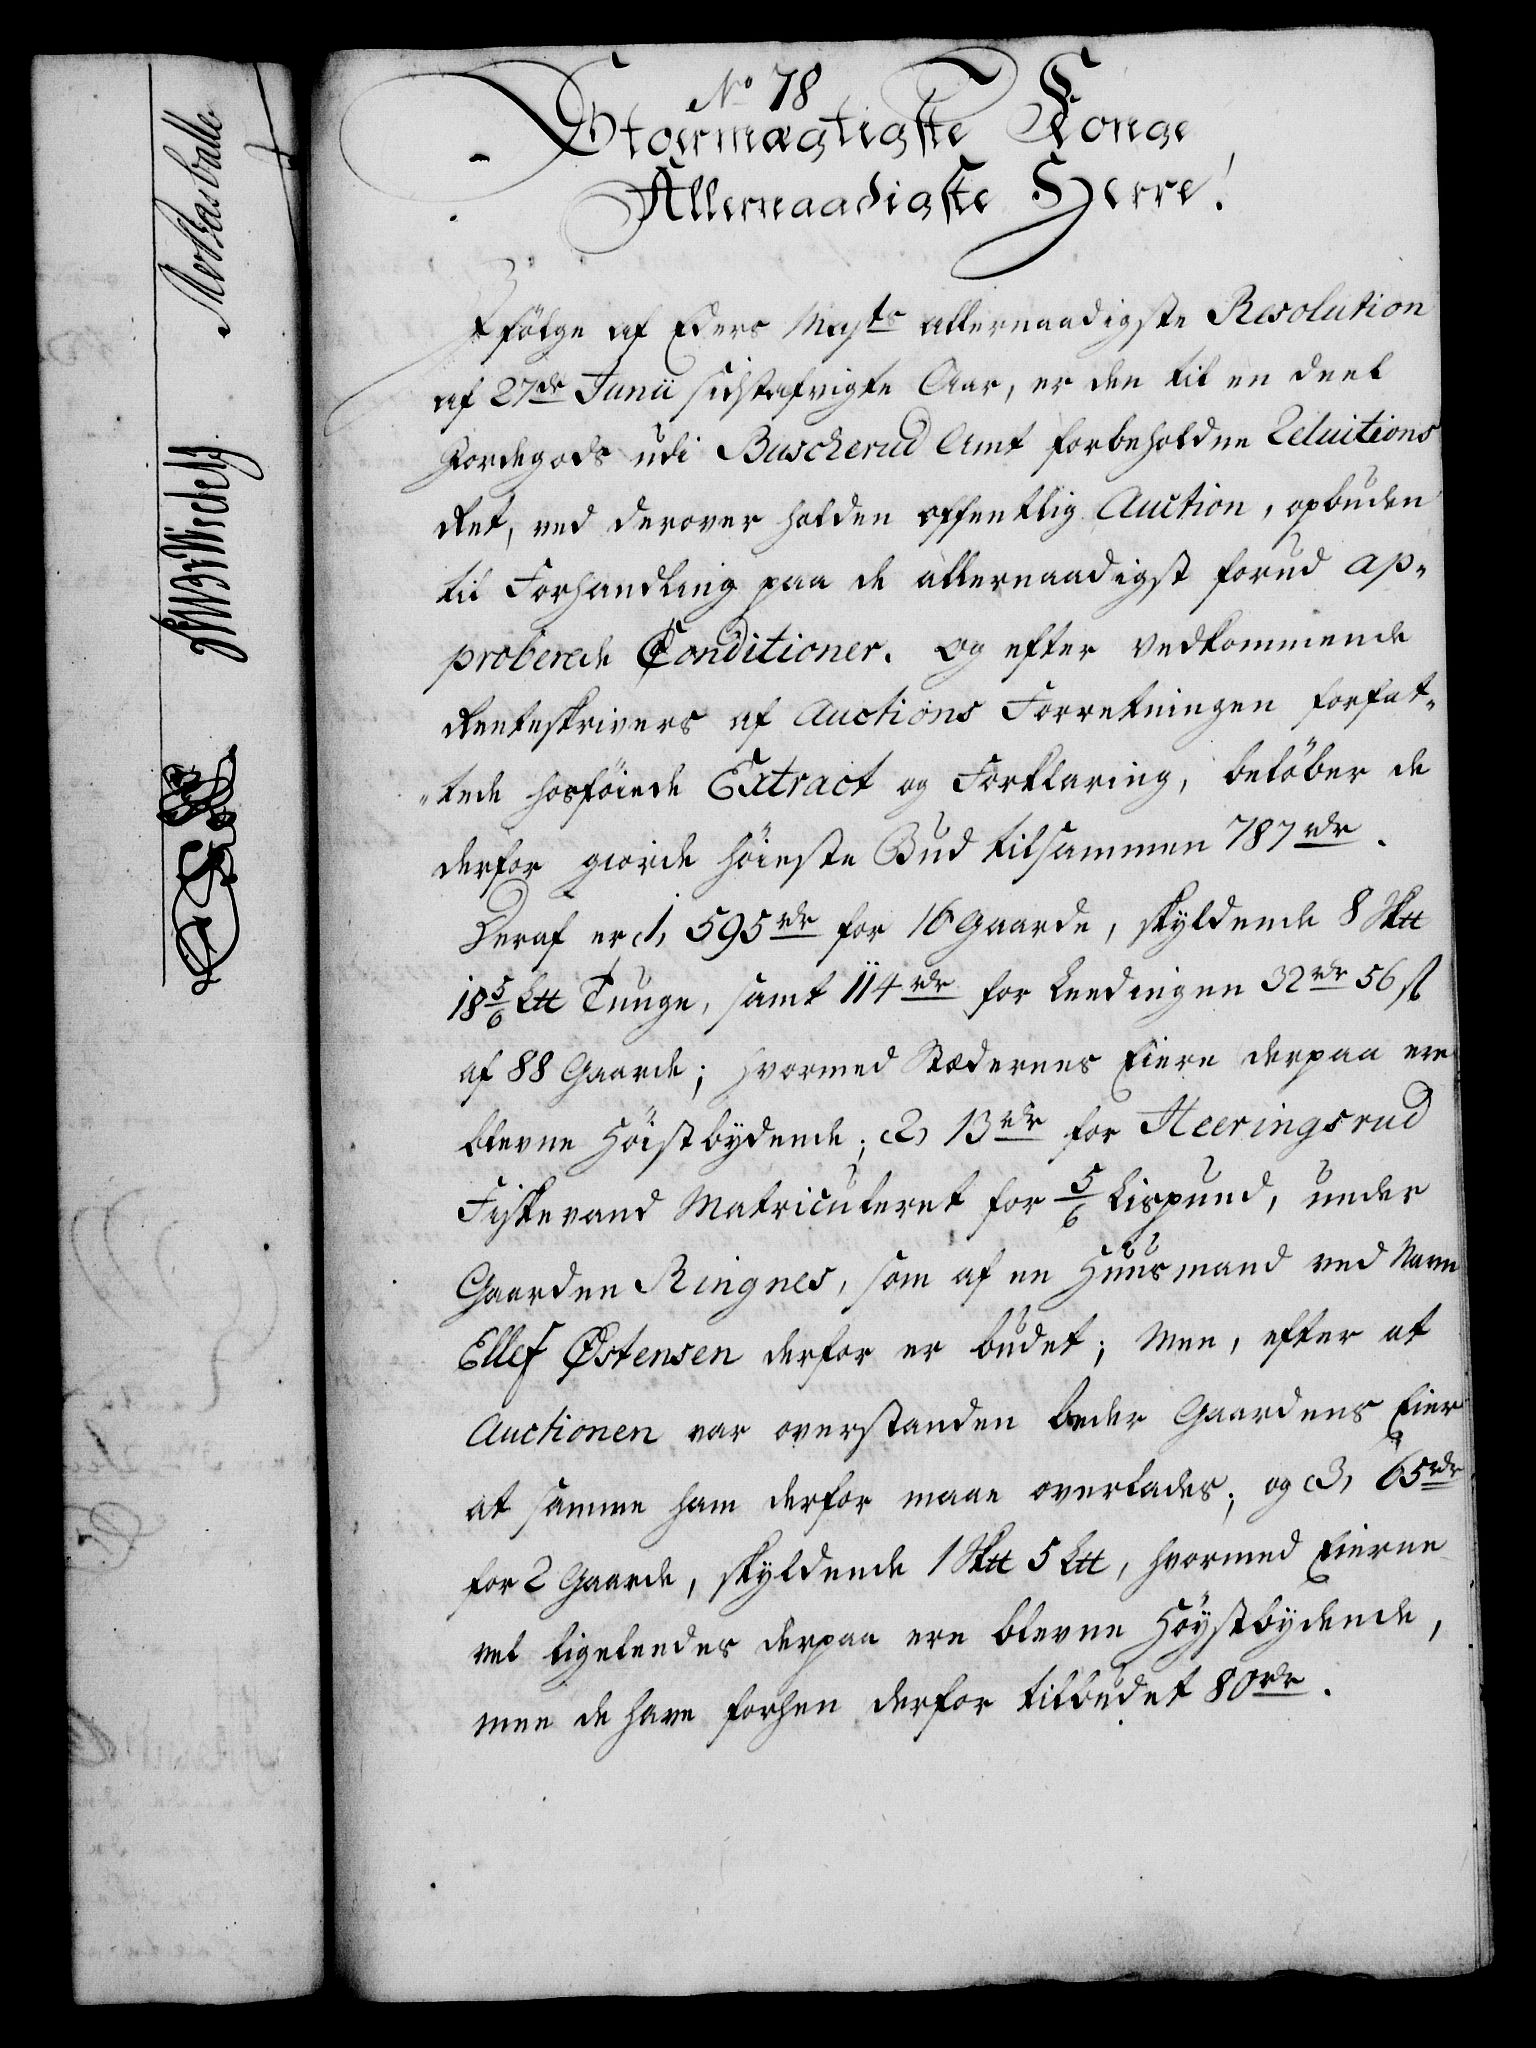 No 78
Stormægtigste Konge
Allernaadigste Herre!
Ifölge af Eders Majts allernaadigste Resolution
af 27de Junii sidstafvigte Aar, er den til en deel
Jordegods udi Buscherud Amt forbeholdne Reluitions
Ret, ved derover holden offentlig Auction, opbuden
til Forhandling paa de allernaadigst forud ap-
proberede Conditioner. Og efter vedkommende
Renteskrivers af Auctions Forretningen forfat-
tede hosföiede Extract og Forklaring, belöber de
derfor giorde höieste Bud tilsammen 787 rdr.
Deraf er 1, 595 rdr for 16 Gaarde, skyldende 8 Sk℔
18 5/6 L℔ Tunge, samt 114 rdr for Leedingen 32 rdr 56 ſs
af 88 Gaarde; hvormed Stædernes Eiere derpaa ere
blevne Höistbydende; 2, 13 rdr for Heeringsrud
Fiskevand Matriculeret for 5/6 Lispund, under
Gaarden Ringnes, som af en Huusmand ved Navn
Ellef Østensen derfor er budet; Men, efter at
Auctionen var overstanden beder Gaardens Eier
at samme ham derfor maae overlades; og 3, 65 rdr
for 2 Gaarde, skyldende 1 Sk℔ 5 L℔, hvormed Eierne
vel ligeleedes derpaa ere blevne Höystbydende,
men de have forhen derfor tilbudet 80 rdr.